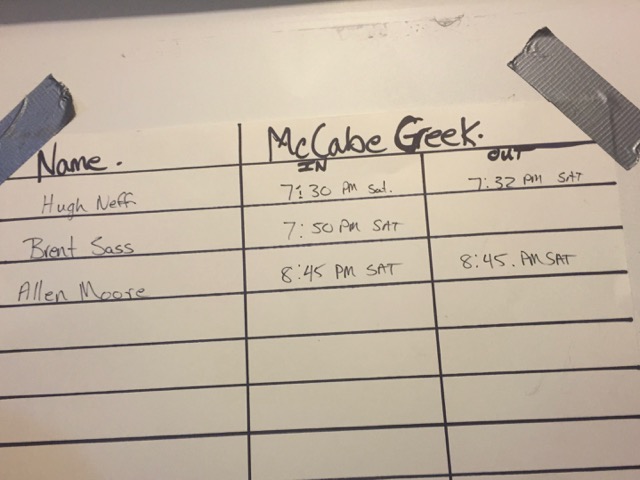 Name. McCabe Creek.
IN OUT
Hugh Neff 7:30 PM Sat. 7:32 PM SAT
Brent Sass 7:50 PM SAT
Allen Moore 8:45 PM SAT 8:45. PM SAT